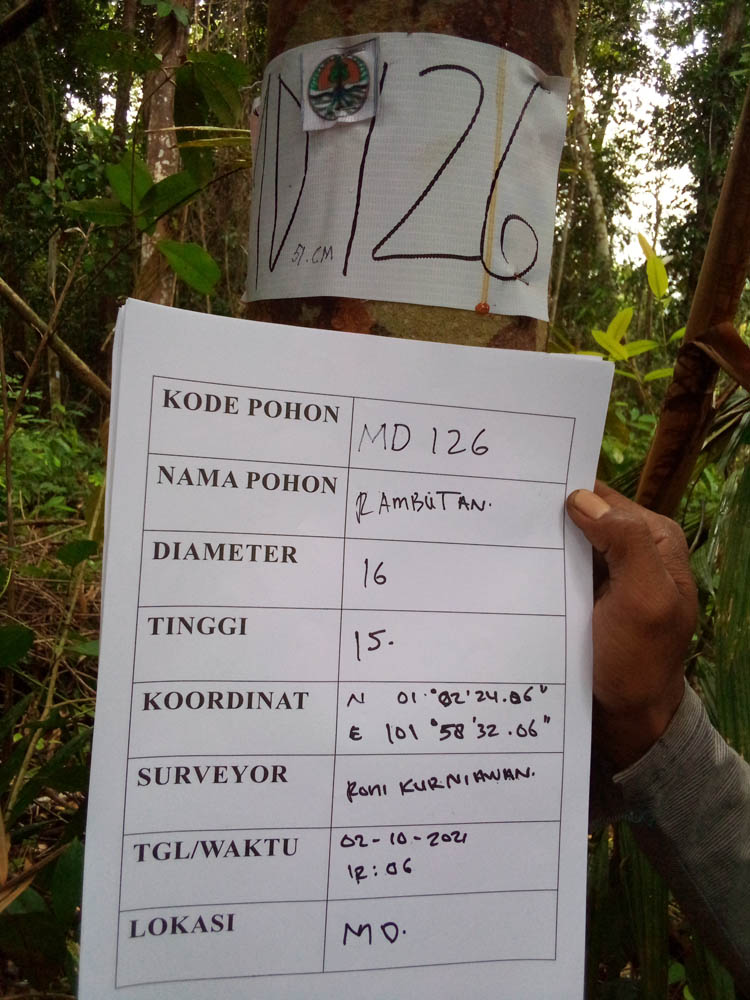 MD 126
51.CM
KODE POHON MD 126
NAMA POHON RAMBUTAN.
DIAMETER 16
TINGGI 15.
KOORDINAT N 01°02'24.06"
E 101°58'32.06"
SURVEYOR RONI KURNIAWAN.
TGL/WAKTU 02-10-2021
12:06
LOKASI MD.